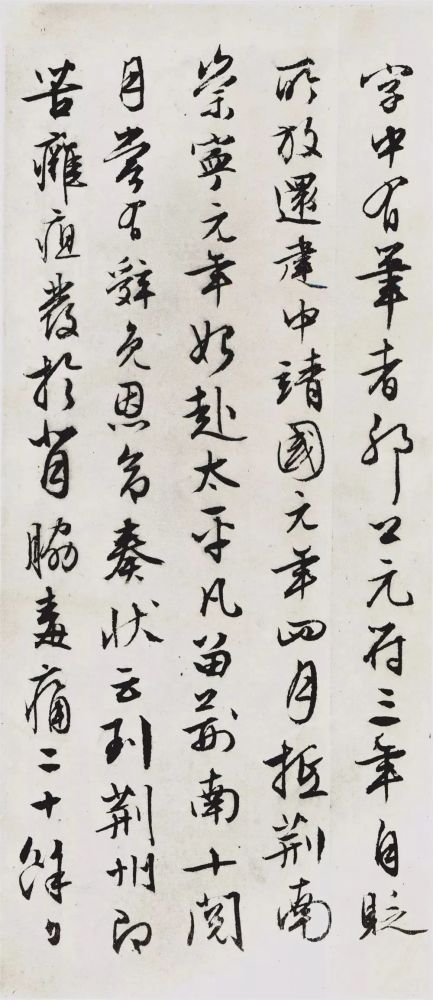 字中有筆者耶公元符三年自貶
所放還建中靖國元年四月抵荊南
崇寧元年始赴太平凡留荊南十閱
月嘗有辭免恩命奏狀云到荊州即
苦癰疽發於背脇毒痛二十餘日